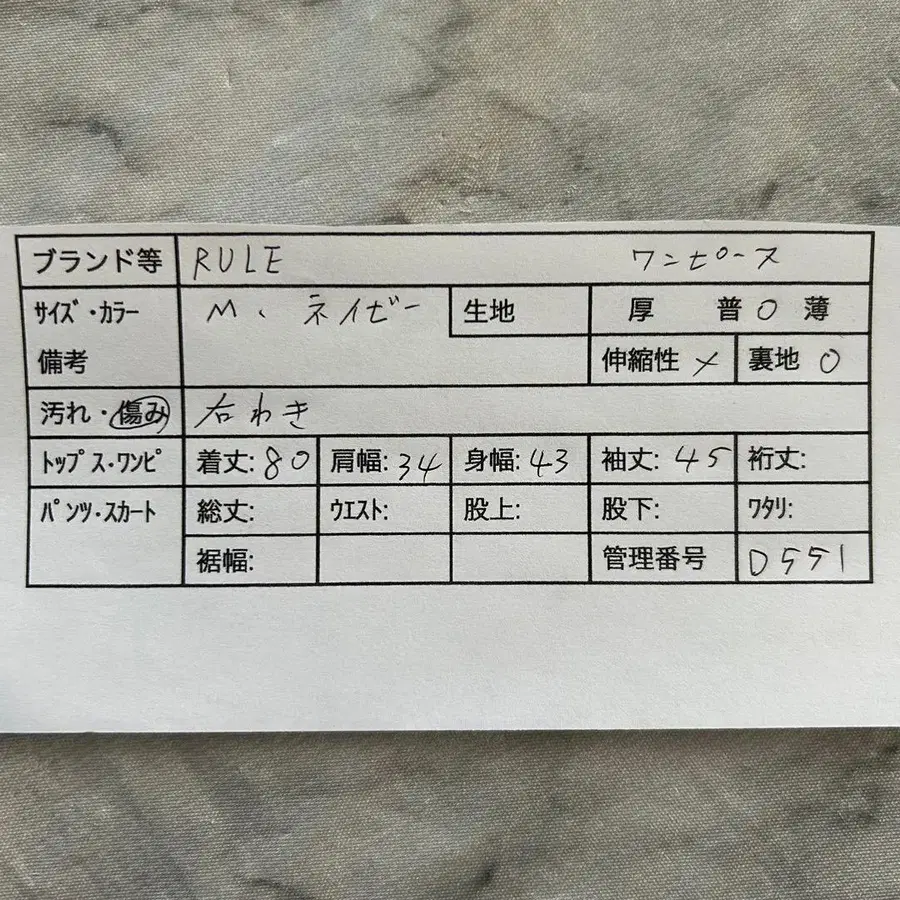 ブランド等 RULE ワンピース
サイズ・カラー M、ネイビー 生地 厚 普○ 薄
備考 伸縮性 × 裏地 ○
汚れ・傷み 右わき
トップス・ワンピ 着丈:80 肩幅:34 身幅:43 袖丈:45 裄丈:
パンツ・スカート 総丈: ウエスト: 股上: 股下: ワタリ:
裾幅: 管理番号 D551